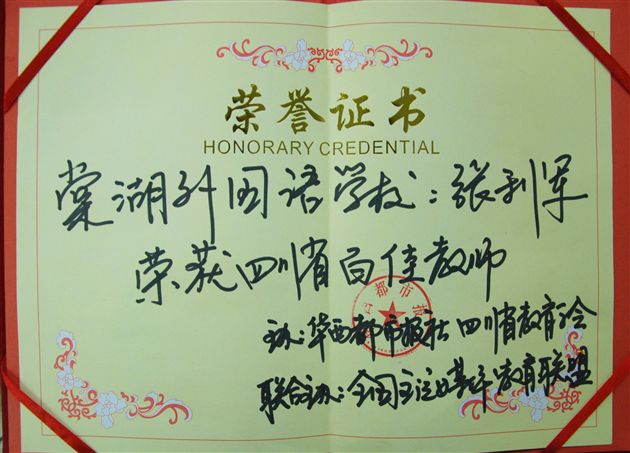 荣誉证书
HONORARY CREDENTIAL
棠湖外国语学校：张利军
荣获四川省百佳教师
主办：华西都市报社 四川省教育学会
联合主办：全国主流媒体教育联盟
都市